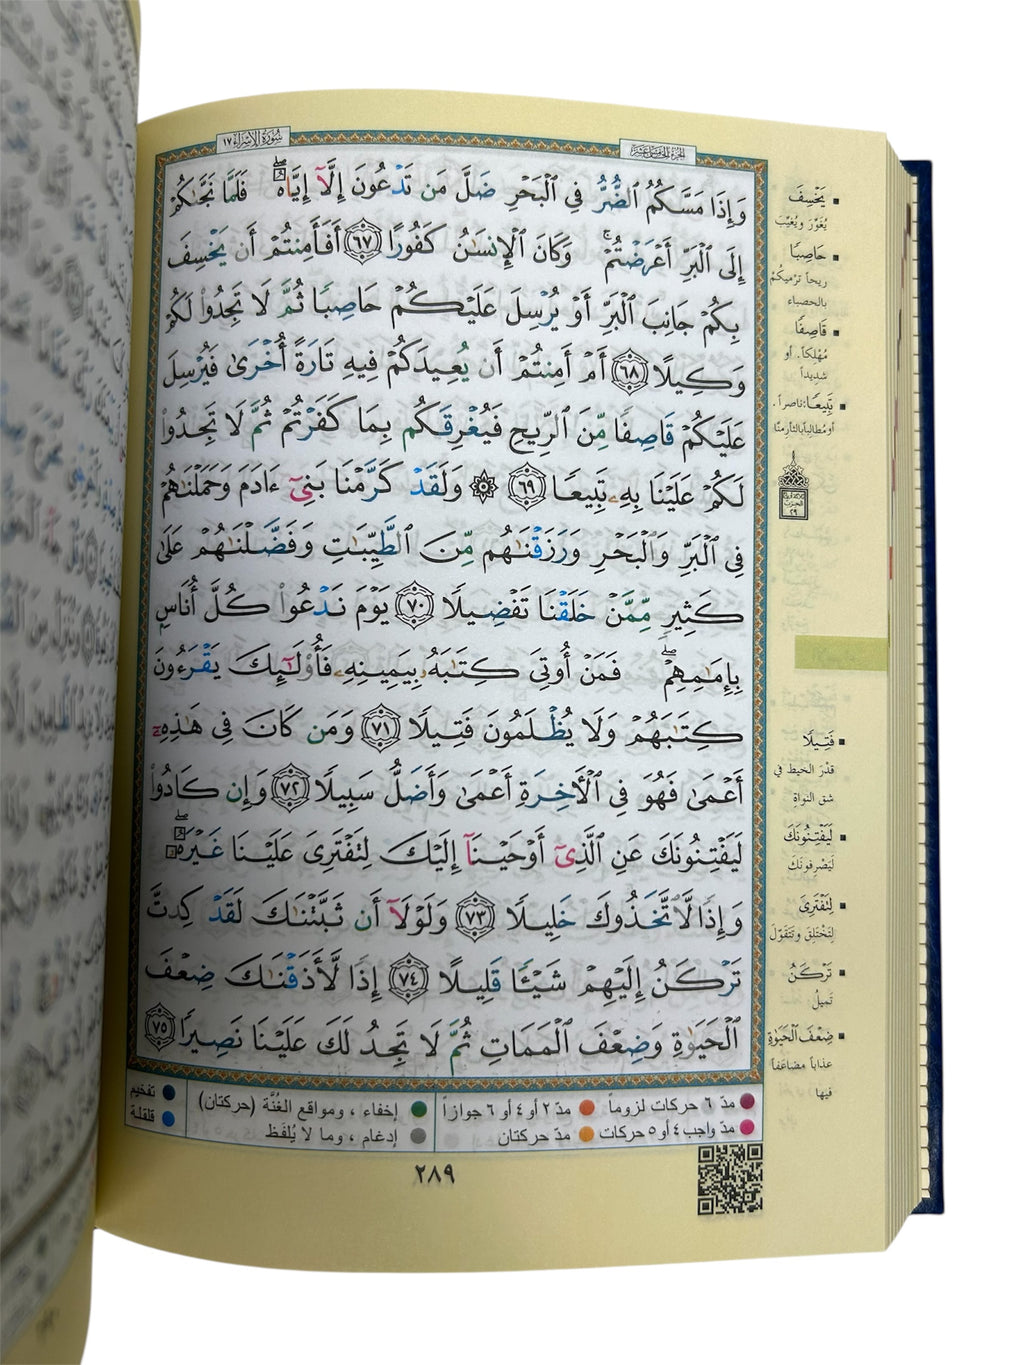 سُورَةُ الإِسْرَاء ١٧
الجزء الخامس عشر
وَإِذَا مَسَّكُمُ ٱلضُّرُّ فِي ٱلْبَحْرِ ضَلَّ مَن تَدْعُونَ إِلَّآ إِيَّاهُ ۖ فَلَمَّا نَجَّىٰكُمْ
إِلَى ٱلْبَرِّ أَعْرَضْتُمْ ۚ وَكَانَ ٱلْإِنسَٰنُ كَفُورًا ٦٧ أَفَأَمِنتُمْ أَن يَخْسِفَ
بِكُمْ جَانِبَ ٱلْبَرِّ أَوْ يُرْسِلَ عَلَيْكُمْ حَاصِبًا ثُمَّ لَا تَجِدُوا۟ لَكُمْ
وَكِيلًا ٦٨ أَمْ أَمِنتُمْ أَن يُعِيدَكُمْ فِيهِ تَارَةً أُخْرَىٰ فَيُرْسِلَ
عَلَيْكُمْ قَاصِفًا مِّنَ ٱلرِّيحِ فَيُغْرِقَكُم بِمَا كَفَرْتُمْ ثُمَّ لَا تَجِدُوا۟
لَكُمْ عَلَيْنَا بِهِۦ تَبِيعًا ٦٩ ۞ وَلَقَدْ كَرَّمْنَا بَنِىٓ ءَادَمَ وَحَمَلْنَٰهُمْ
فِي ٱلْبَرِّ وَٱلْبَحْرِ وَرَزَقْنَٰهُم مِّنَ ٱلطَّيِّبَٰتِ وَفَضَّلْنَٰهُمْ عَلَىٰ
كَثِيرٍ مِّمَّنْ خَلَقْنَا تَفْضِيلًا ٧٠ يَوْمَ نَدْعُوا۟ كُلَّ أُنَاسٍۭ
بِإِمَٰمِهِمْ ۖ فَمَنْ أُوتِىَ كِتَٰبَهُۥ بِيَمِينِهِۦ فَأُو۟لَٰٓئِكَ يَقْرَءُونَ
كِتَٰبَهُمْ وَلَا يُظْلَمُونَ فَتِيلًا ٧١ وَمَن كَانَ فِى هَٰذِهِۦٓ
أَعْمَىٰ فَهُوَ فِي ٱلْأَخِرَةِ أَعْمَىٰ وَأَضَلُّ سَبِيلًا ٧٢ وَإِن كَادُوا۟
لَيَفْتِنُونَكَ عَنِ ٱلَّذِىٓ أَوْحَيْنَآ إِلَيْكَ لِتَفْتَرِىَ عَلَيْنَا غَيْرَهُۥ ۖ
وَإِذًا لَّٱتَّخَذُوكَ خَلِيلًا ٧٣ وَلَوْلَآ أَن ثَبَّتْنَٰكَ لَقَدْ كِدتَّ
تَرْكَنُ إِلَيْهِمْ شَيْـًٔا قَلِيلًا ٧٤ إِذًا لَّأَذَقْنَٰكَ ضِعْفَ
ٱلْحَيَوٰةِ وَضِعْفَ ٱلْمَمَاتِ ثُمَّ لَا تَجِدُ لَكَ عَلَيْنَا نَصِيرًا ٧٥
يَخْسِفَ
يُغَوِّرَ ويُغَيِّبَ
حَاصِبًا
ريحاً ترميكُمْ
بالحصباء
قَاصِفًا
مُهْلكاً. أو
شديداً
تَبِيعًا: ناصراً.
أو مُطالِباً بالثأر منّا
الحزب
٢٩
فَتِيلًا
قَدْرَ الخيط في
شق النواةِ
لَيَفْتِنُونَكَ
لَيَصْرِفونَك
لِتَفْتَرِىَ
لِتَخْتَلِقَ وتَتَقَوَّلَ
تَرْكَنُ
تَمِيلُ
ضِعْفَ الْحَيَوٰةِ
عذاباً مضاعَفاً
فيها
مدّ ٦ حركات لزوماً مدّ ٢ أو ٤ أو ٦ جوازاً إخفاء ، ومواقع الغُنَّة (حركتان) تفخيم
مدّ واجب ٤ أو ٥ حركات مدّ حركتان إدغام ، وما لا يُلفَظ قلقلة
٢٨٩